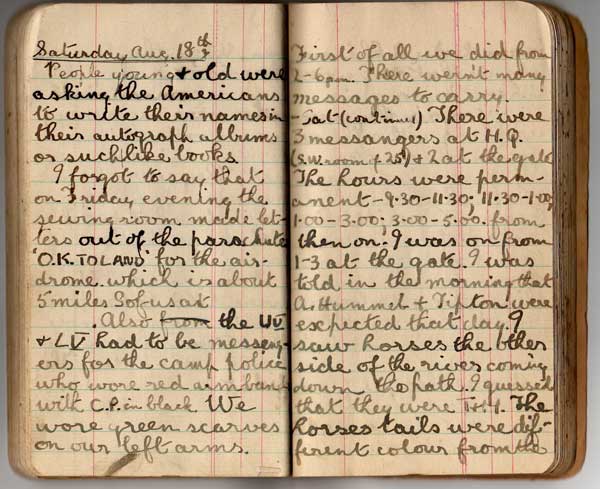 Saturday Aug. 18th
People young + old were
asking the Americans
to write their names in
their autograph albums
or suchlike books.
I forgot to say that
on Friday evening the
sewing room made let-
ters out of the parachute
'O.K. TO LAND' for the air-
drome which is about
5 miles S of us
Also from the UV
& LV had to be messeng-
ers for the camp police
who wore red armbands
with C.P. in black We
wore green scarves
on our left arms.
First of all we did from
2-6pm. There weren't many
messages to carry.
-Sat (continued) There were
3 messangers at H.Q.
(S.W. room of 25) + 2 at the gate
The hours were perm-
anent - 9.30-11.30; 11.30-1.00;
1.00-3.00; 3.00-5.00. from
then on. I was on from
1-3 at the gate. I was
told in the morning that
A. Hummel + Tipton were
expected that day. I
saw horses the other
side of the river coming
down the path. I guessed
that they were T.+H. The
horses tails were dif-
ferent colour from the